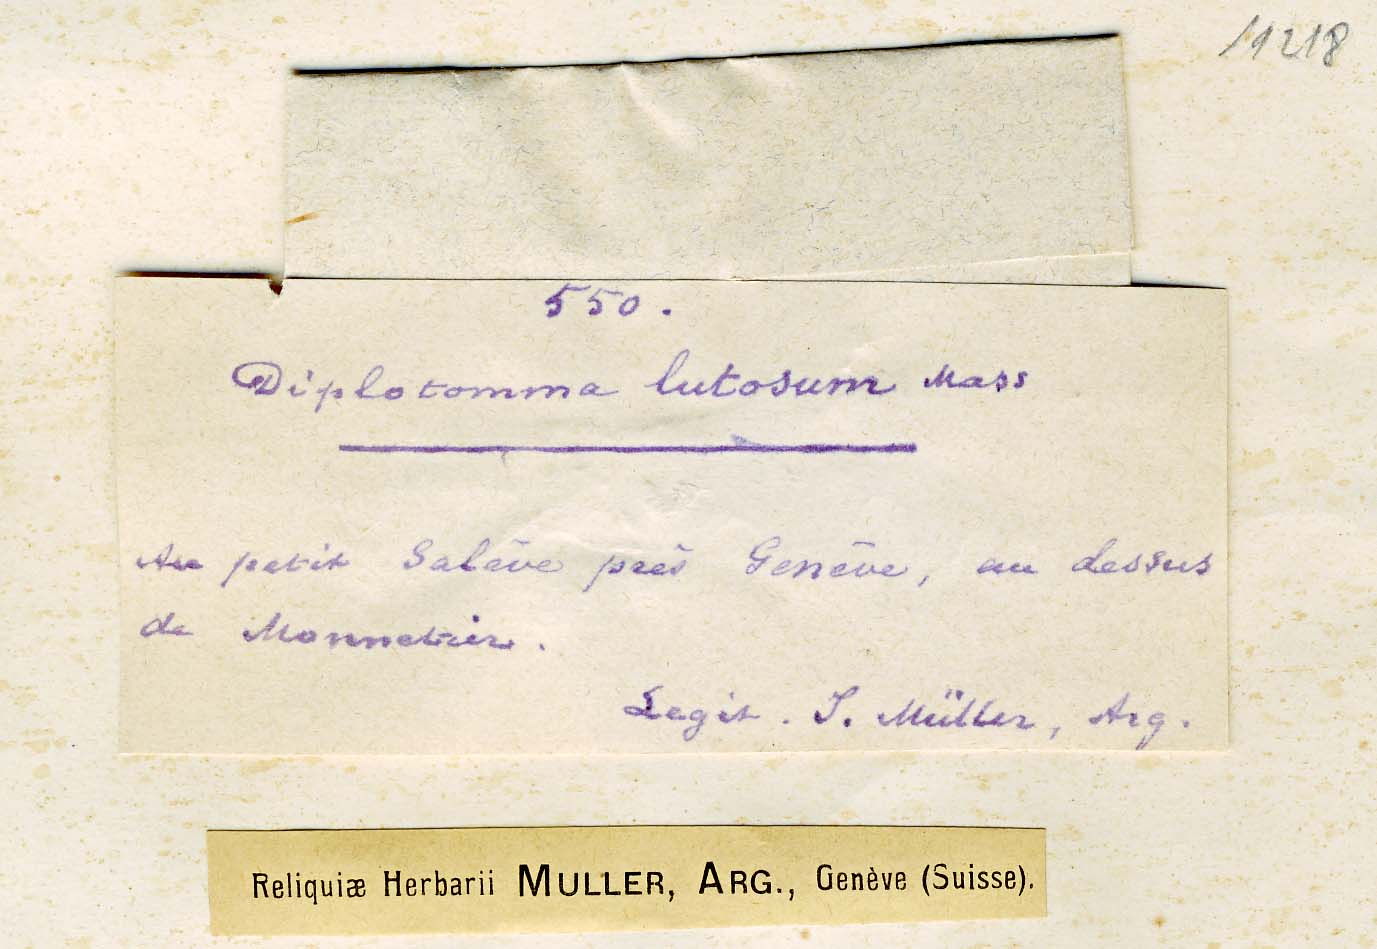 11218
550.
Diplotomma lutosum Mass
Au petit Salève près Genève, au dessus
de Monnetier.
Legit. J. Müller, Arg.
Reliquiæ Herbarii MULLER, ARG., Genève (Suisse).